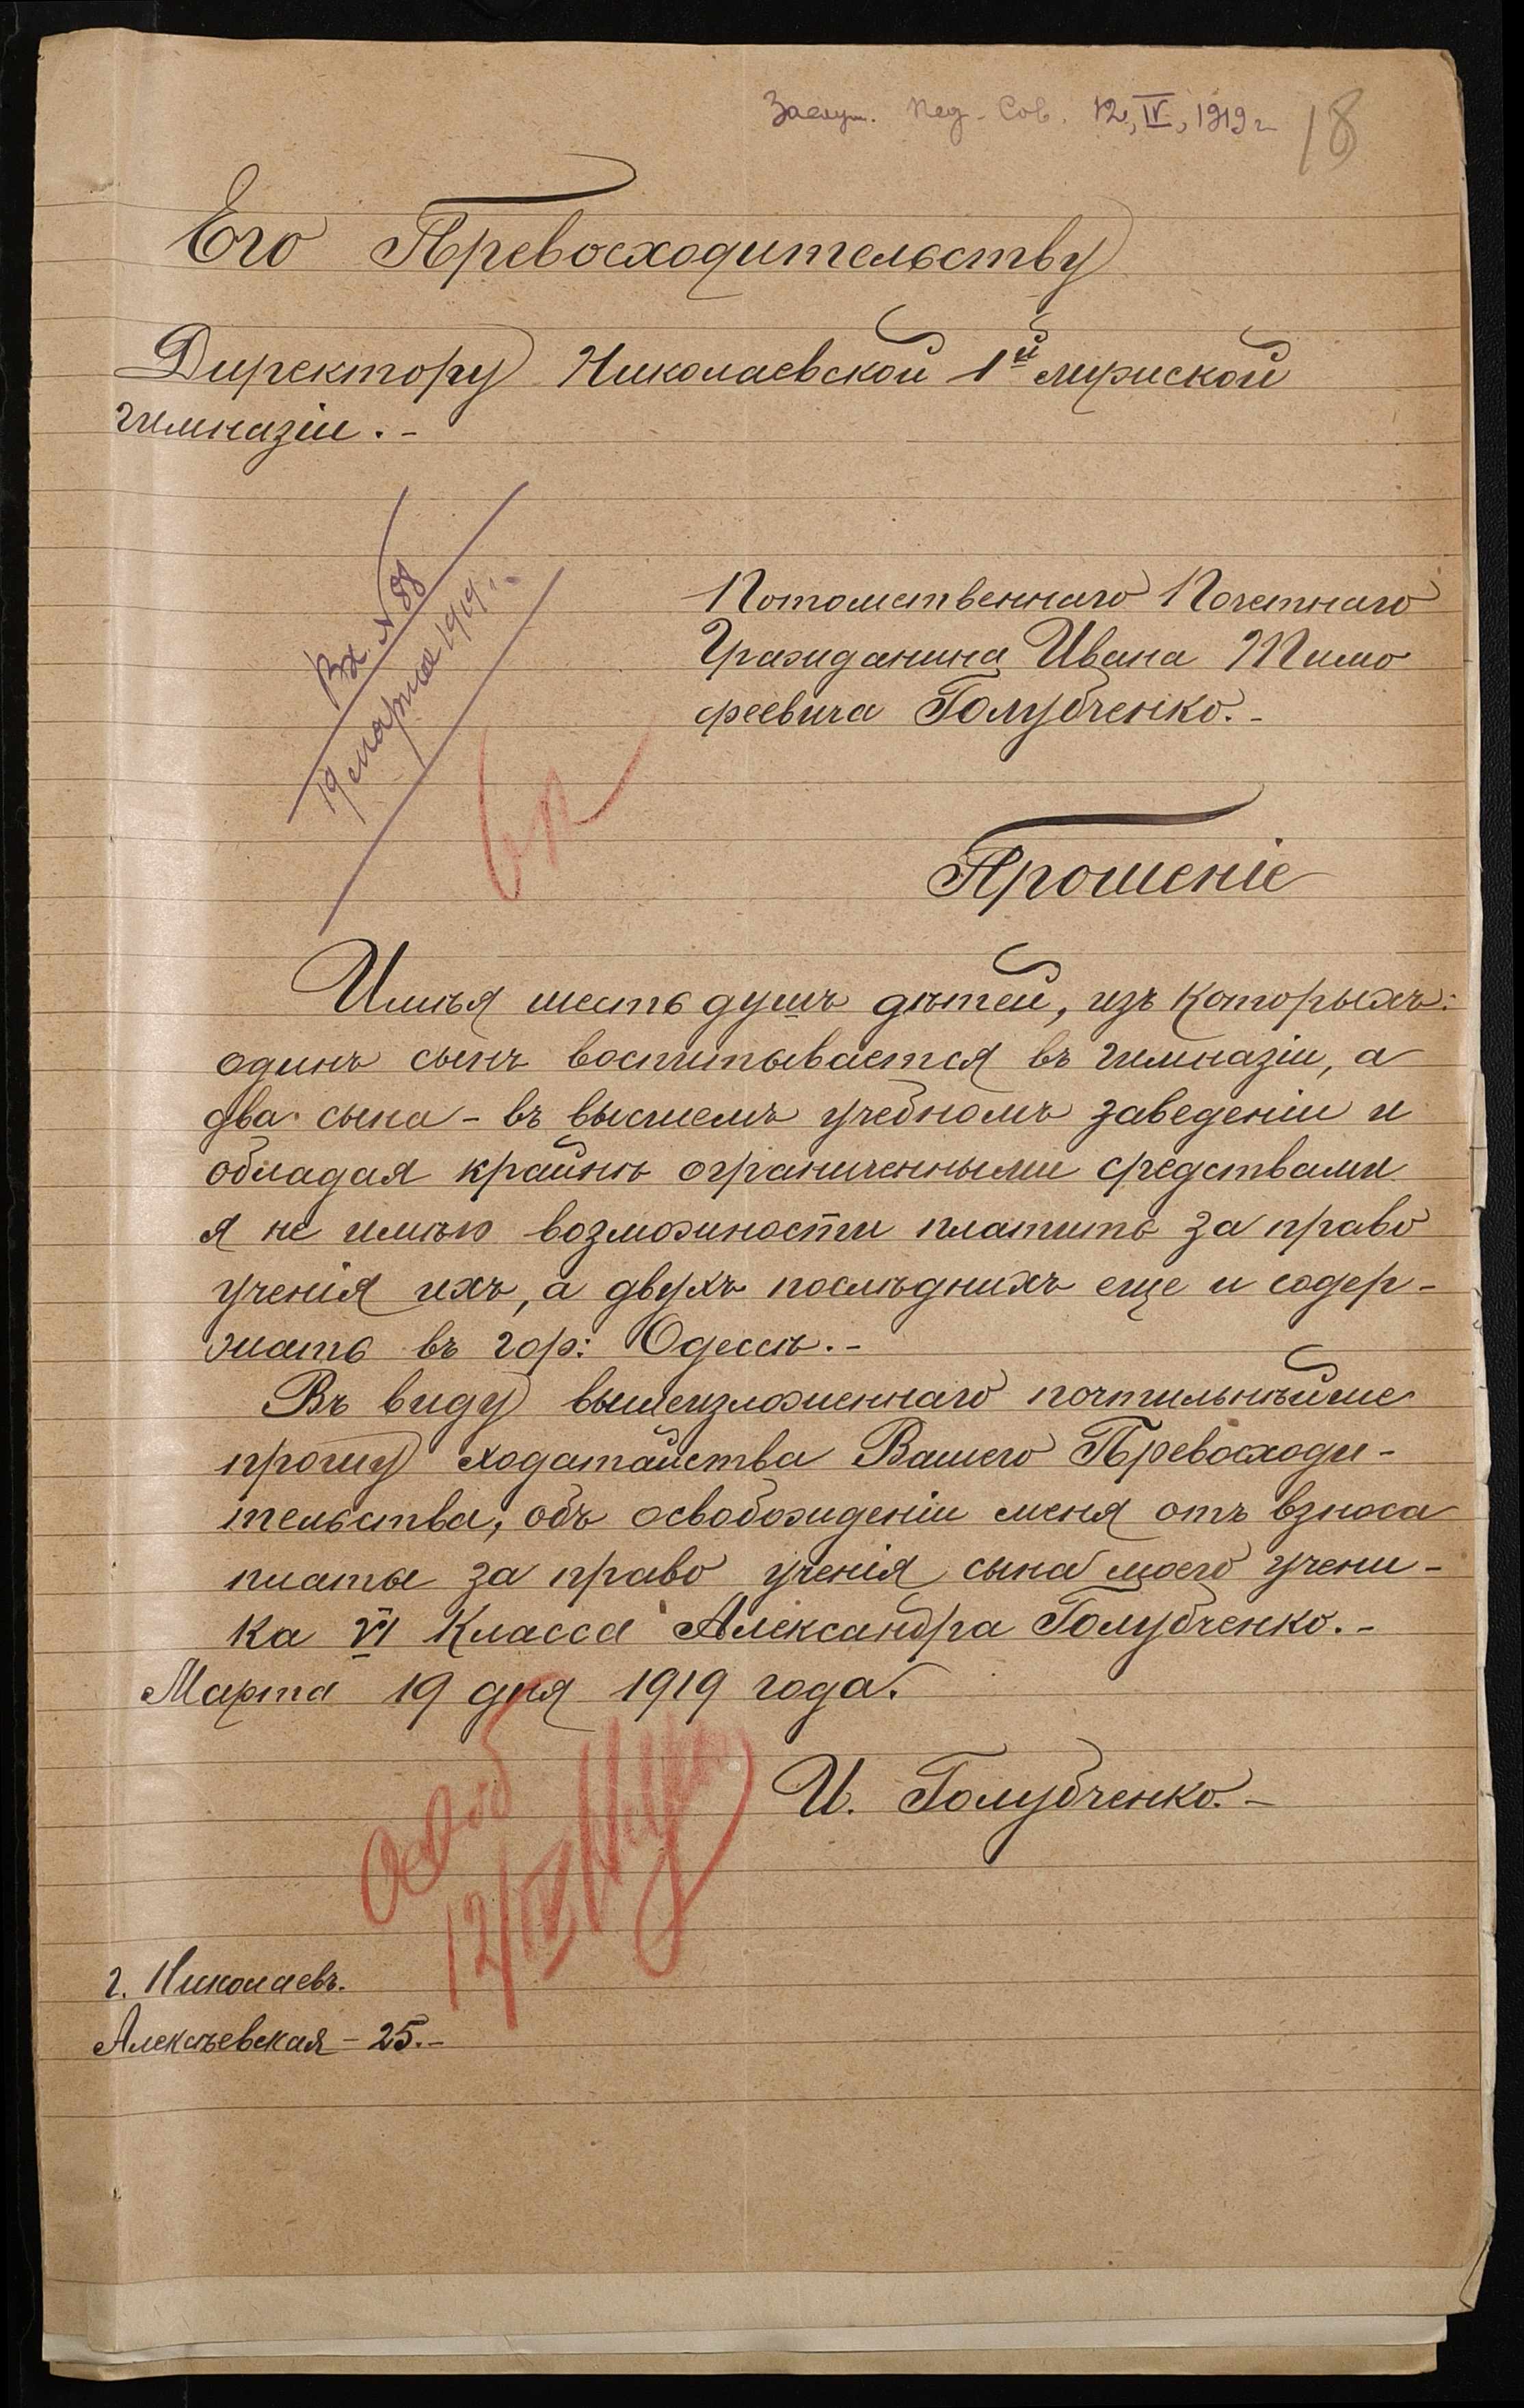 Заслуш. Пед. Сов. 12, IV, 1919 г.
18
Его Превосходительству
Директору Николаевской 1й мужской
гимназіи.-
Вх. № 88
19 марта 1919 г.
Потомственнаго Почетнаго
Гражданина Ивана Тимо
феевича Голубченко.-
Прошеніе
Имѣя шесть душъ дѣтей, изъ которыхъ:
одинъ сынъ воспитывается въ гимназіи, а
два сына - въ высшемъ учебномъ заведеніи и
обладая крайнѣ ограниченными средствами
я не имѣю возможности платить за право
ученія ихъ, а двухъ послѣднихъ еще и содер-
жать въ гор: Одессѣ.-
Въ виду вышеизложеннаго почтильнѣйше
прошу ходатайства Вашего Превосходи-
тельства, объ освобожденіи меня отъ взноса
платы за право ученія сына моего учени-
ка VI класса Александра Голубченко.-
Марта 19 дня 1919 года.
И. Голубченко.-
Освоб
12/IV
г. Николаевъ.
Алексѣевская - 25.-